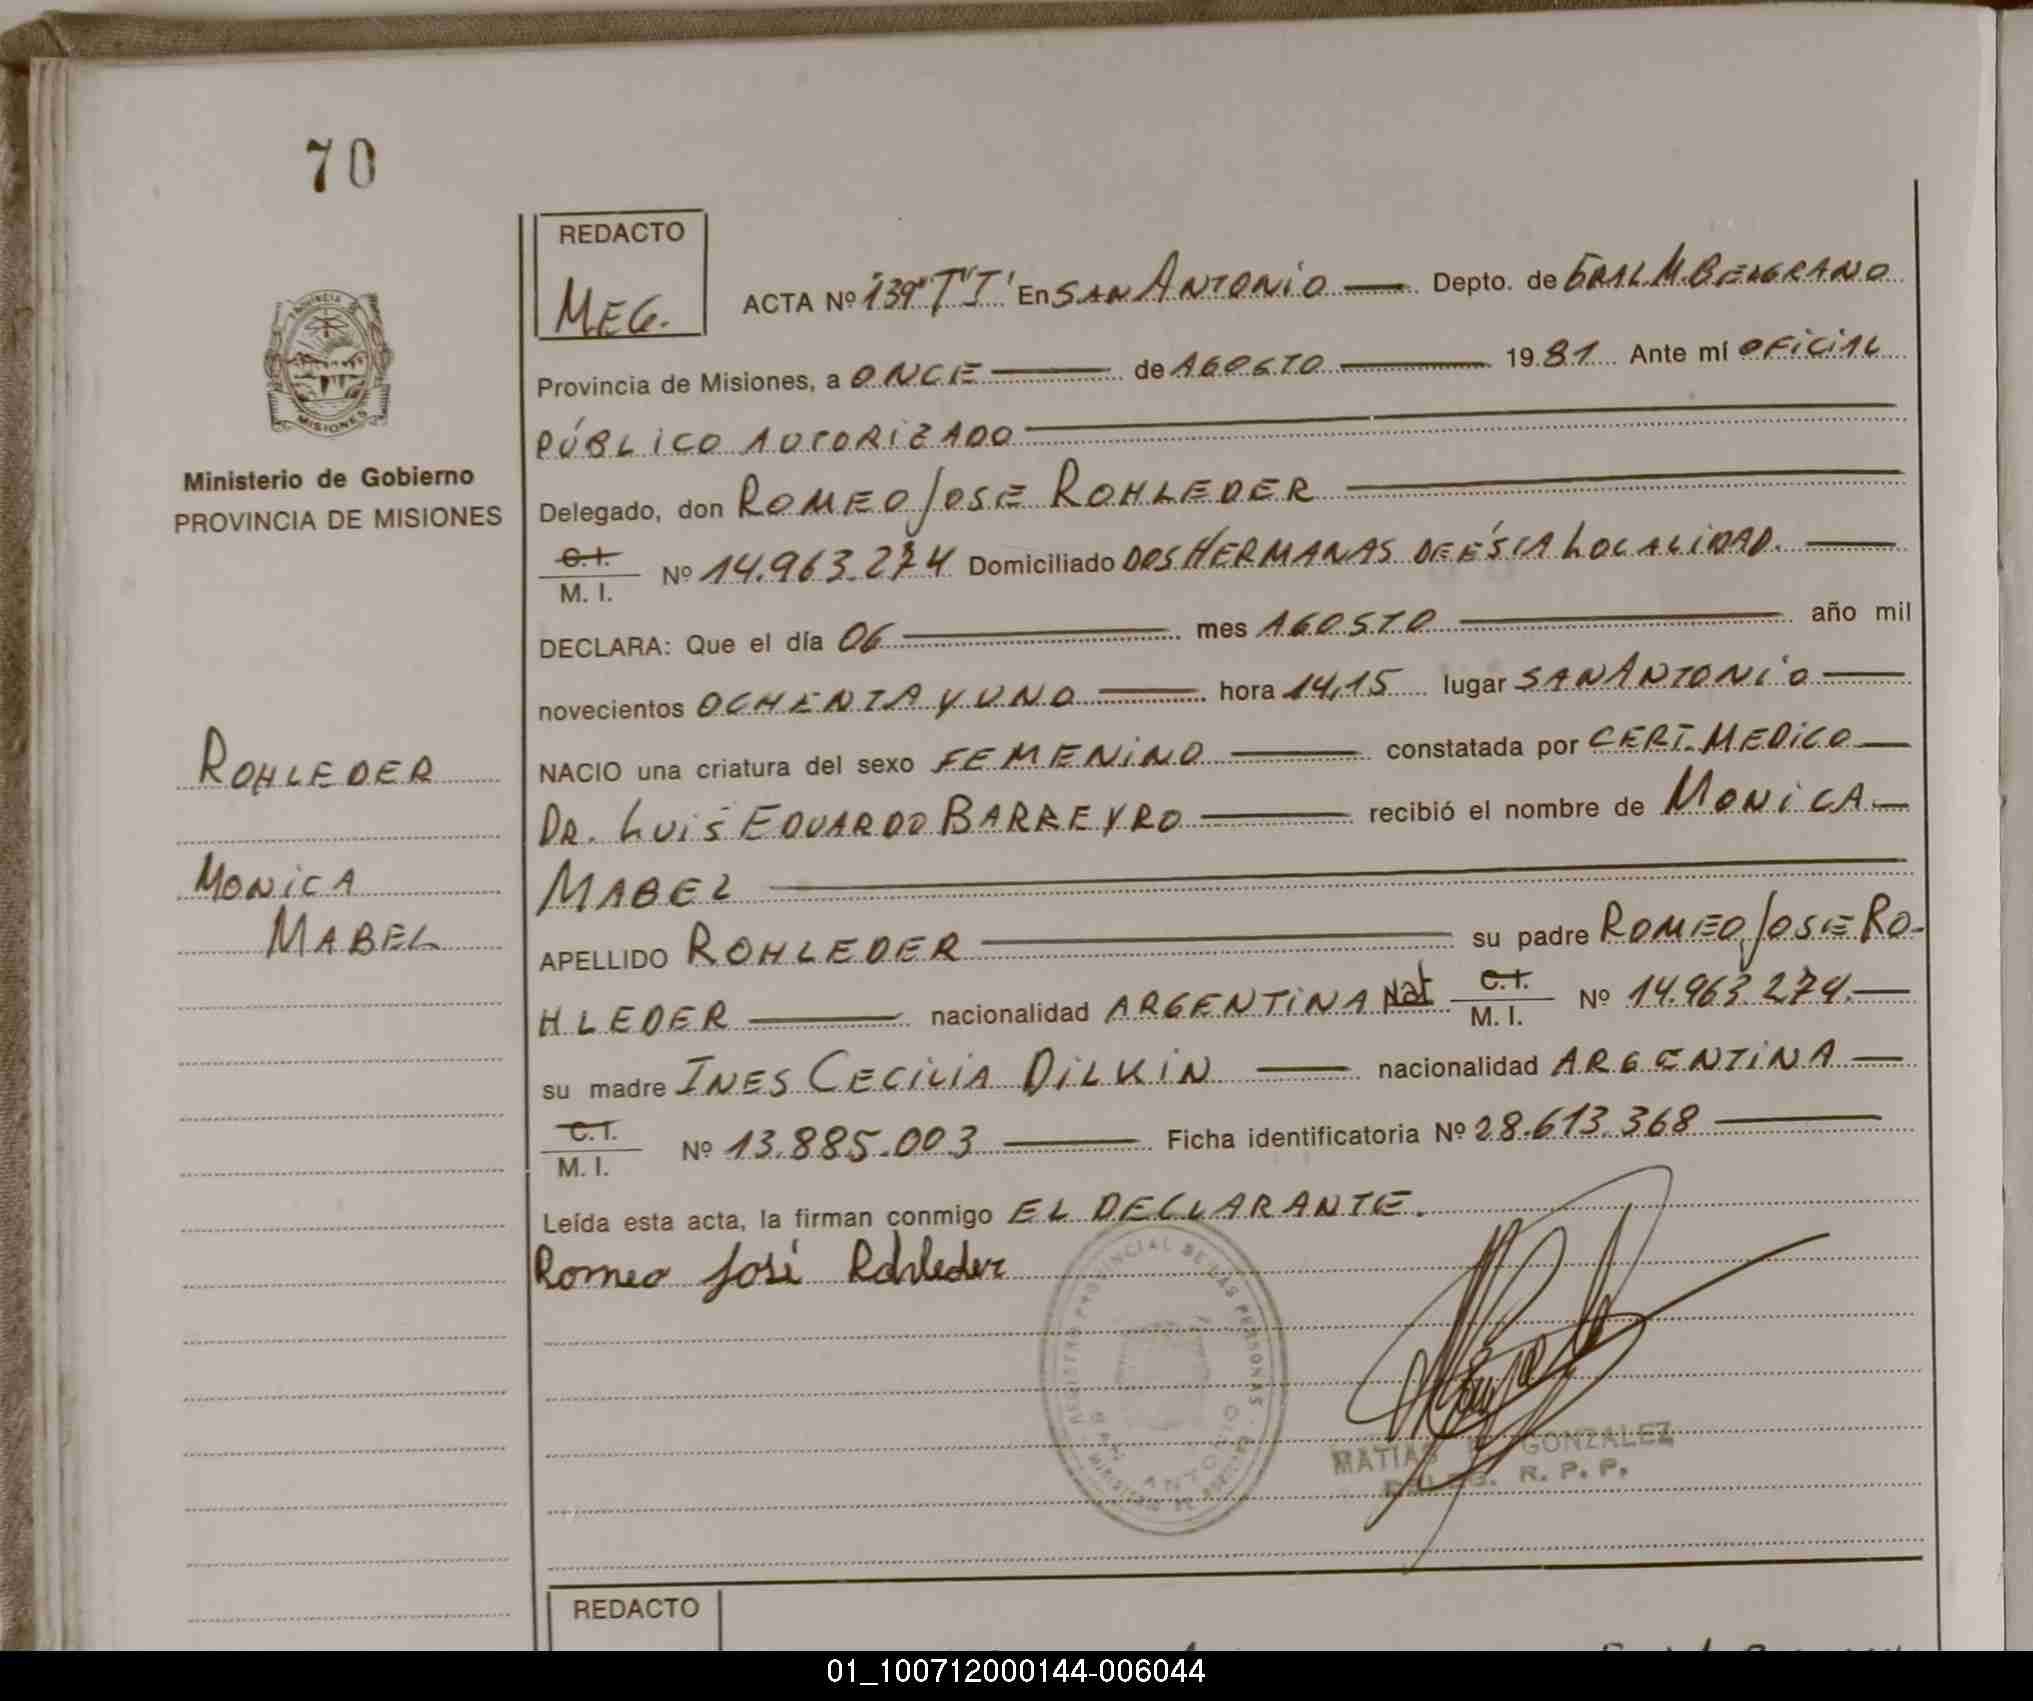 70
REDACTO
MEG.
ACTA Nº 139 "T" "I" En SAN ANTONIO Depto. de GRAL M. BELGRANO
Provincia de Misiones, a ONCE de AGOSTO 1981 Ante mí OFICIAL
PÚBLICO AUTORIZADO
Delegado, don ROMEO JOSE ROHLEDER
C.I. M. I. Nº 14.963.274 Domiciliado DOS HERMANAS DE ÉSTA LOCALIDAD.
DECLARA: Que el día 06 mes AGOSTO año mil
novecientos OCHENTA Y UNO hora 14,15 lugar SAN ANTONIO
NACIO una criatura del sexo FEMENINO constatada por CERT. MEDICO
DR. LUIS EDUARDO BARREYRO recibió el nombre de MONICA
MABEL
APELLIDO ROHLEDER su padre ROMEO JOSE RO-
HLEDER nacionalidad ARGENTINA Nat C.I. M. I. Nº 14.963.274.
su madre INES CECILIA DILKIN nacionalidad ARGENTINA
C.I. M. I. Nº 13.885.003 Ficha identificatoria Nº 28.613.368
Leída esta acta, la firman conmigo EL DECLARANTE.
Romeo José Rohleder
REGISTRO PROVINCIAL DE LAS PERSONAS
SAN ANTONIO
MATIAS GONZALEZ
DELEG. R. P. P.
PROVINCIA DE
MISIONES
Ministerio de Gobierno
PROVINCIA DE MISIONES
ROHLEDER
MONICA
MABEL
REDACTO
01_100712000144-006044